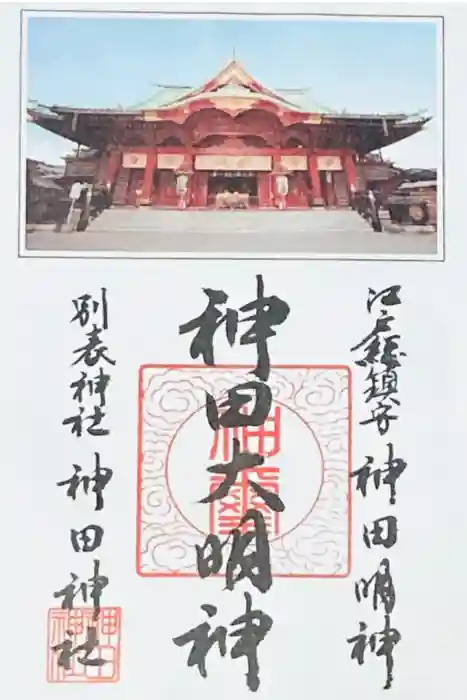 江戸総鎮守 神田明神
神田大明神
神璽
別表神社 神田神社